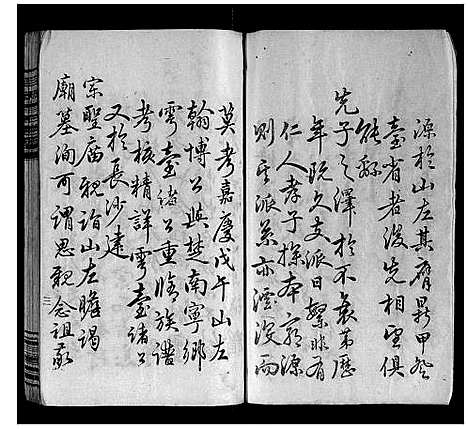 源於山左其膺鼎甲登
臺省者後先相望俱
能繇
先子之澤於不衰第歷
年既久支派日繁非有
仁人孝子探本窮源
則宗派系亦湮沒而
莫考嘉慶戊午山左
翰博公與楚南寧鄉
雩臺諸公重脩族譜
考核精詳雩臺諸公
又於長沙建
宗聖廟親詣山左瞻謁
廟墓洵可謂思親念祖敬
三